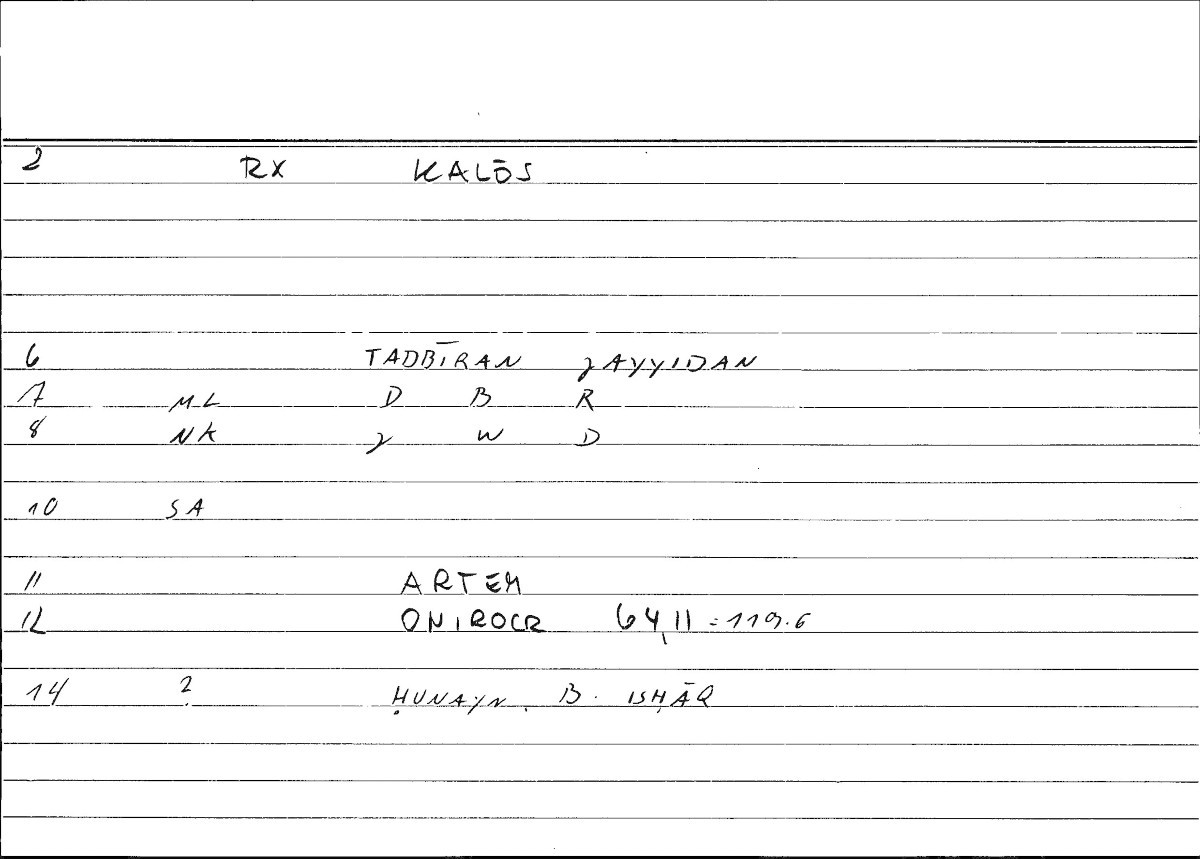 2 RX KALŌS
6 TADBĪRAN ɣAYYIDAN
7 ML D B R
8 NK ɣ W D
10 SA
11 ARTEM
12 ONIROCR 64,11 = 119.6
14 ? ḤUNAYN. B. ISḤĀQ